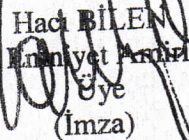 Hacı BİLEN
Emniyet Amiri
Üye
(İmza)